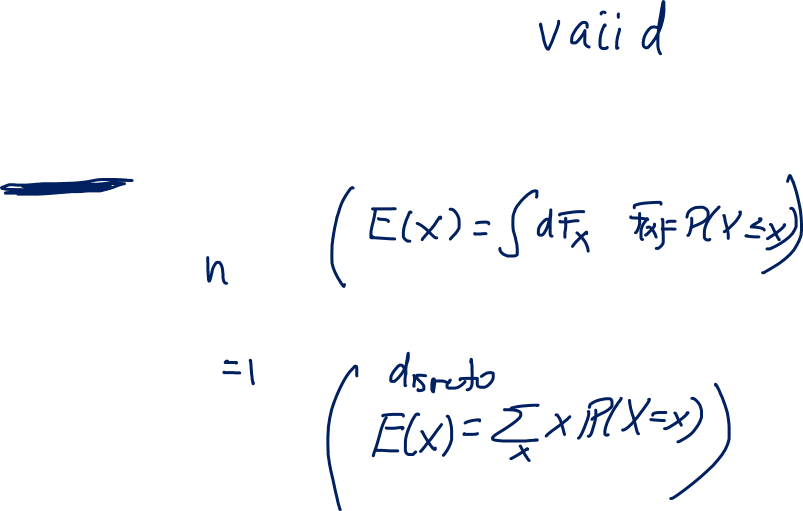 vaiid
( E(x) = ∫ dF_x F(x) = P(X ≤ x) )
n
=1
( discrete
E(x) = Σ_x x P(X=x) )